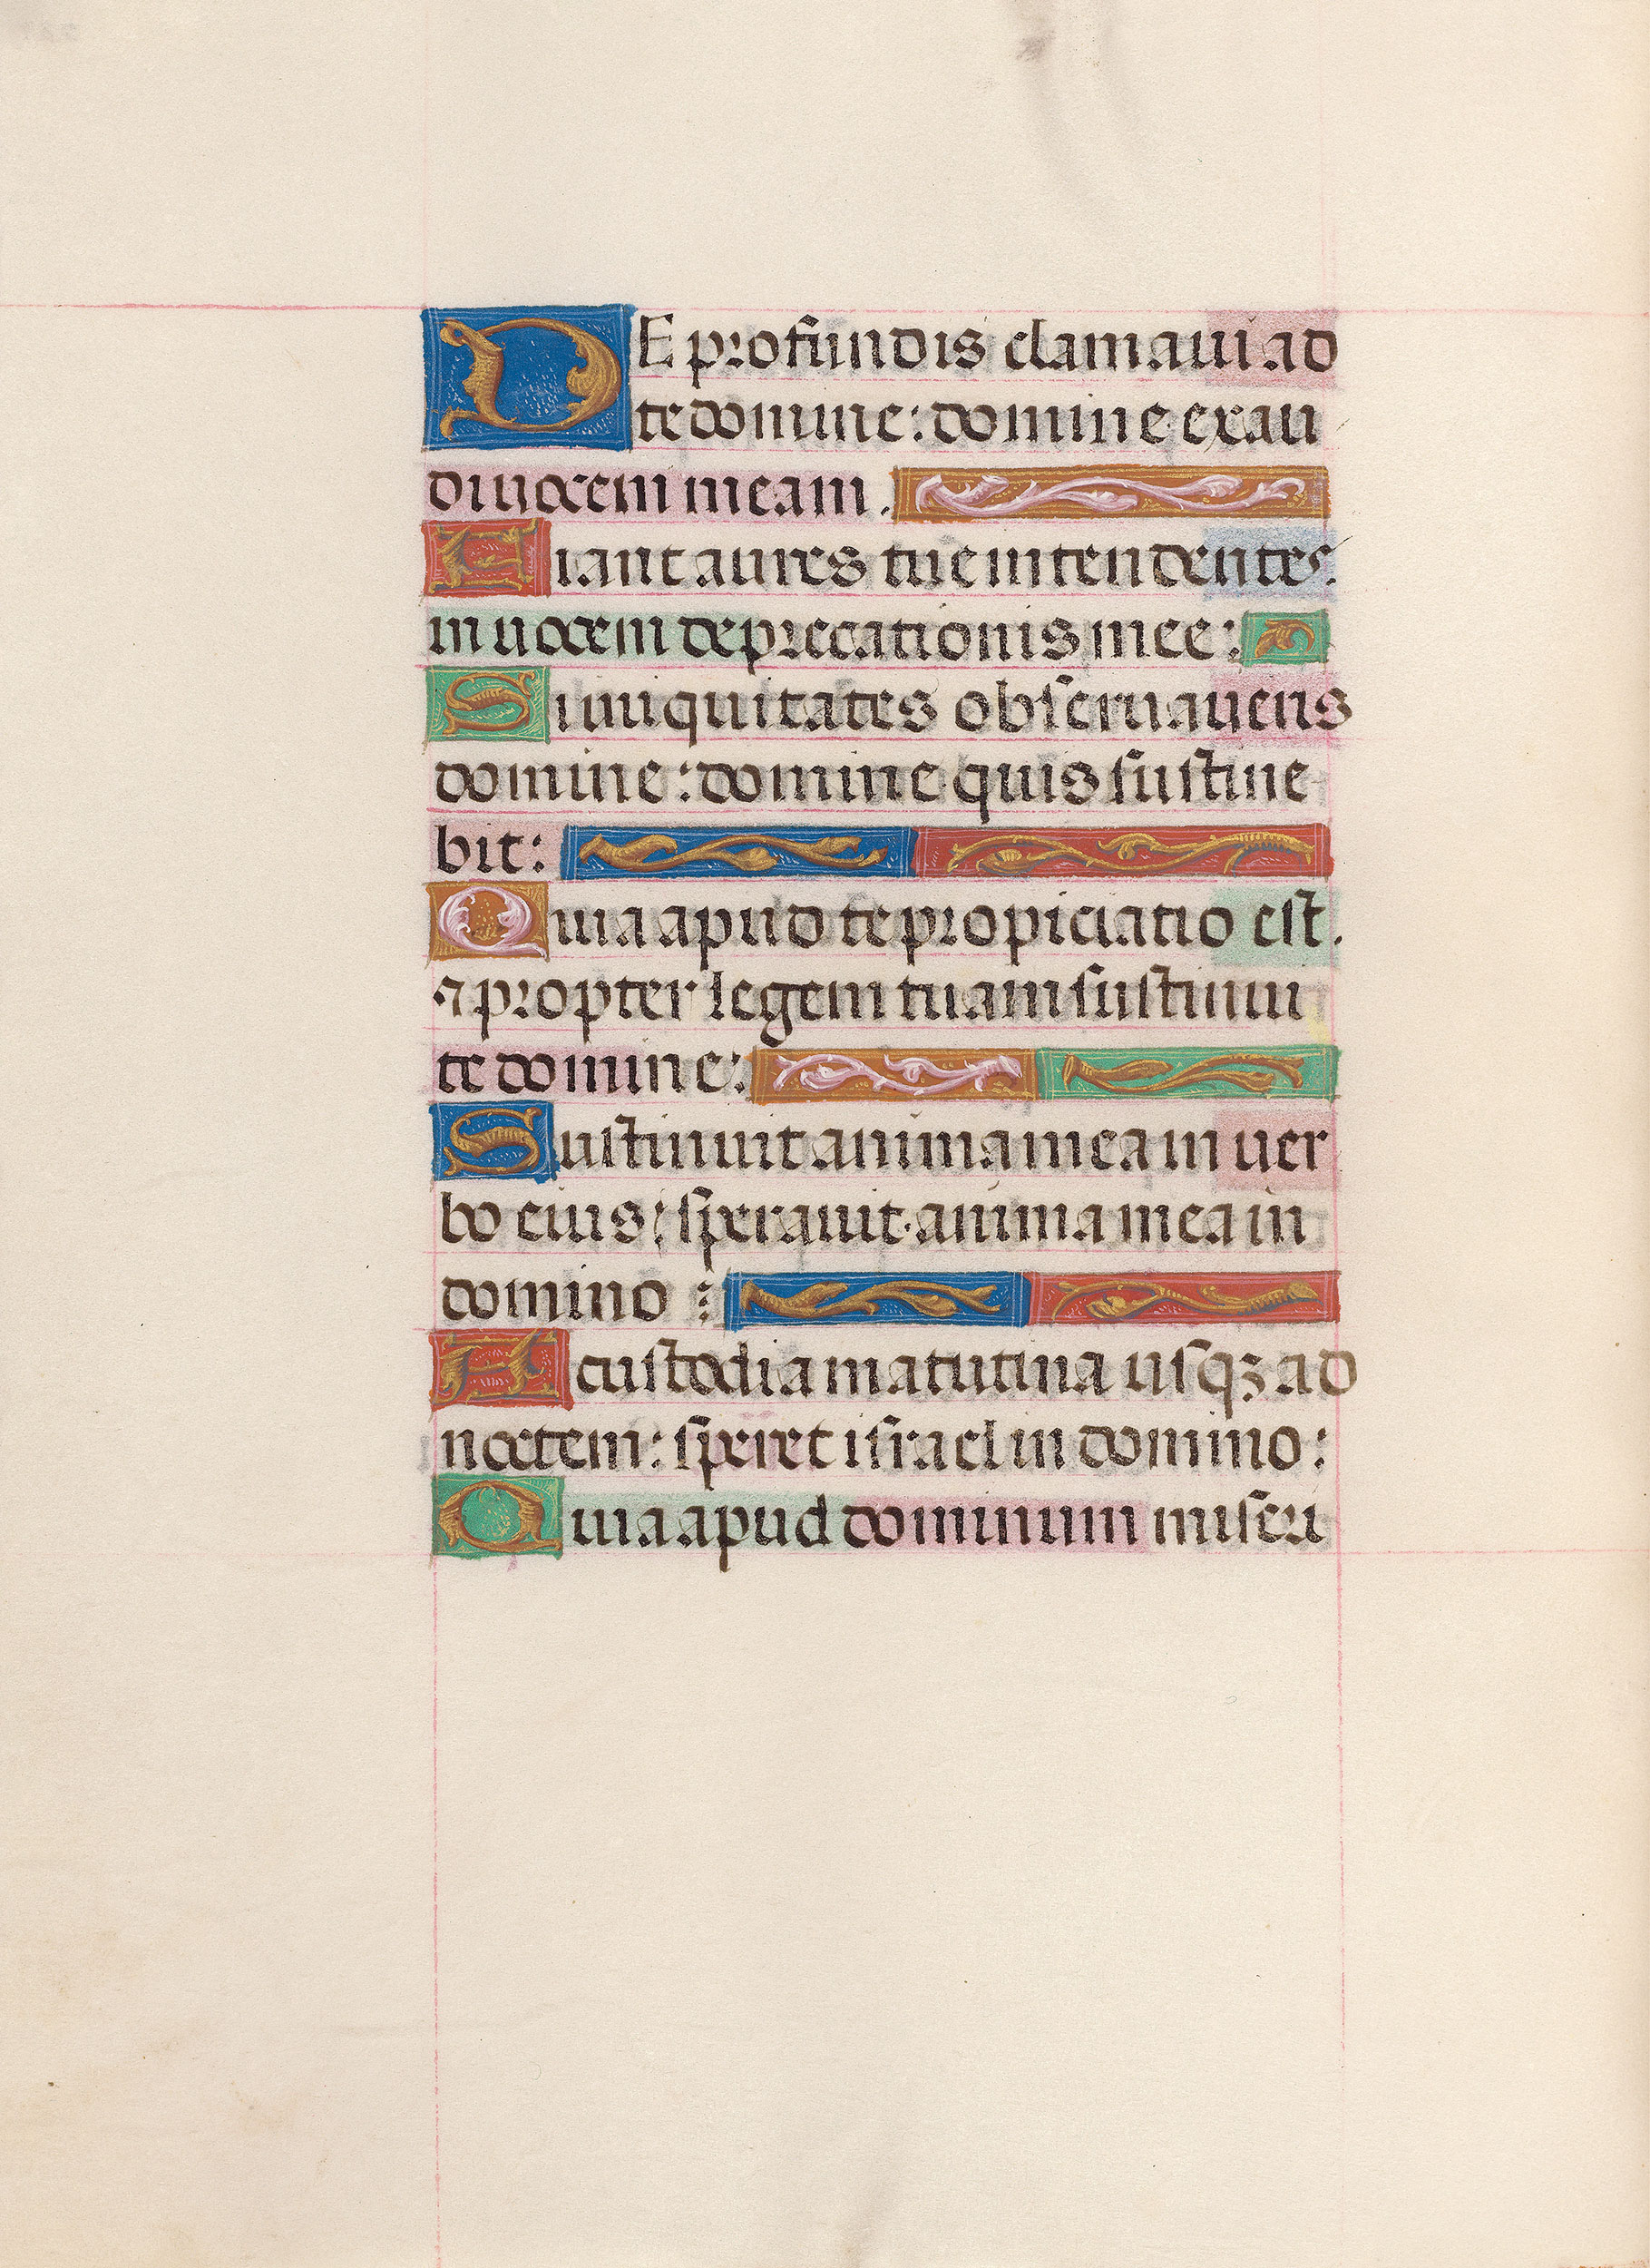 DE profundis clamaui ad
te domine: domine exau
di uocem meam.
Fiant aures tue intendentes.
in uocem deprecationis mee:
Si iniquitates obseruaueris
domine: domine quis sustine
bit:
Quia apud te propiciatio est.
⁊ propter legem tuam sustinui
te domine:
Sustinuit anima mea in uer
bo eius: sperauit anima mea in
domino:
A custodia matutina usqꝫ ad
noctem: speret israel in domino:
Quia apud dominum miseri